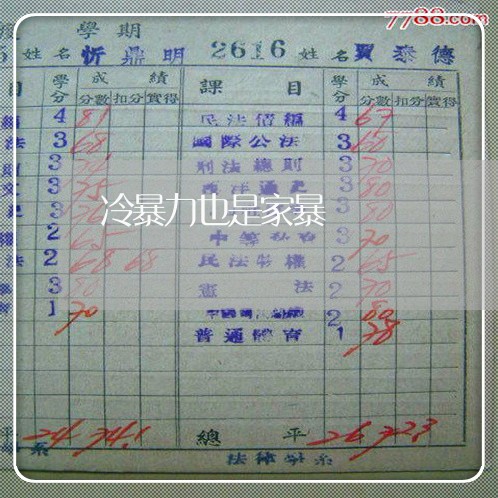 7788.com
學期
姓名 忻鼎明 2616 姓名 賈泰德
目 學分 成績 課目 學分 成績
分數 扣分 實得 分數 扣分 實得
4 81 民法債編 4 67
法 3 68 國際公法 3 60
3 刑法總則 3 70
文 3 75 西洋通史 3 80
3 3 80
冷暴力也是家暴
2 65 3 70
法 2 68 68 民法物權 2 65
3 80 憲法 2 70
1 70 2 80
普通體育 1 78
平 24 74.1 總平 26 72.3
系 法律學系